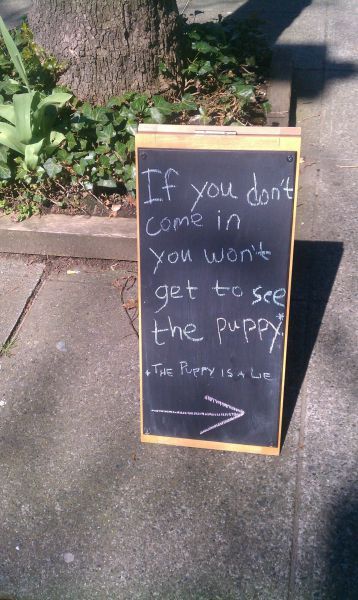 If you don't
come in
you won't
get to see
the puppy*
*THE PUPPY IS A LIE